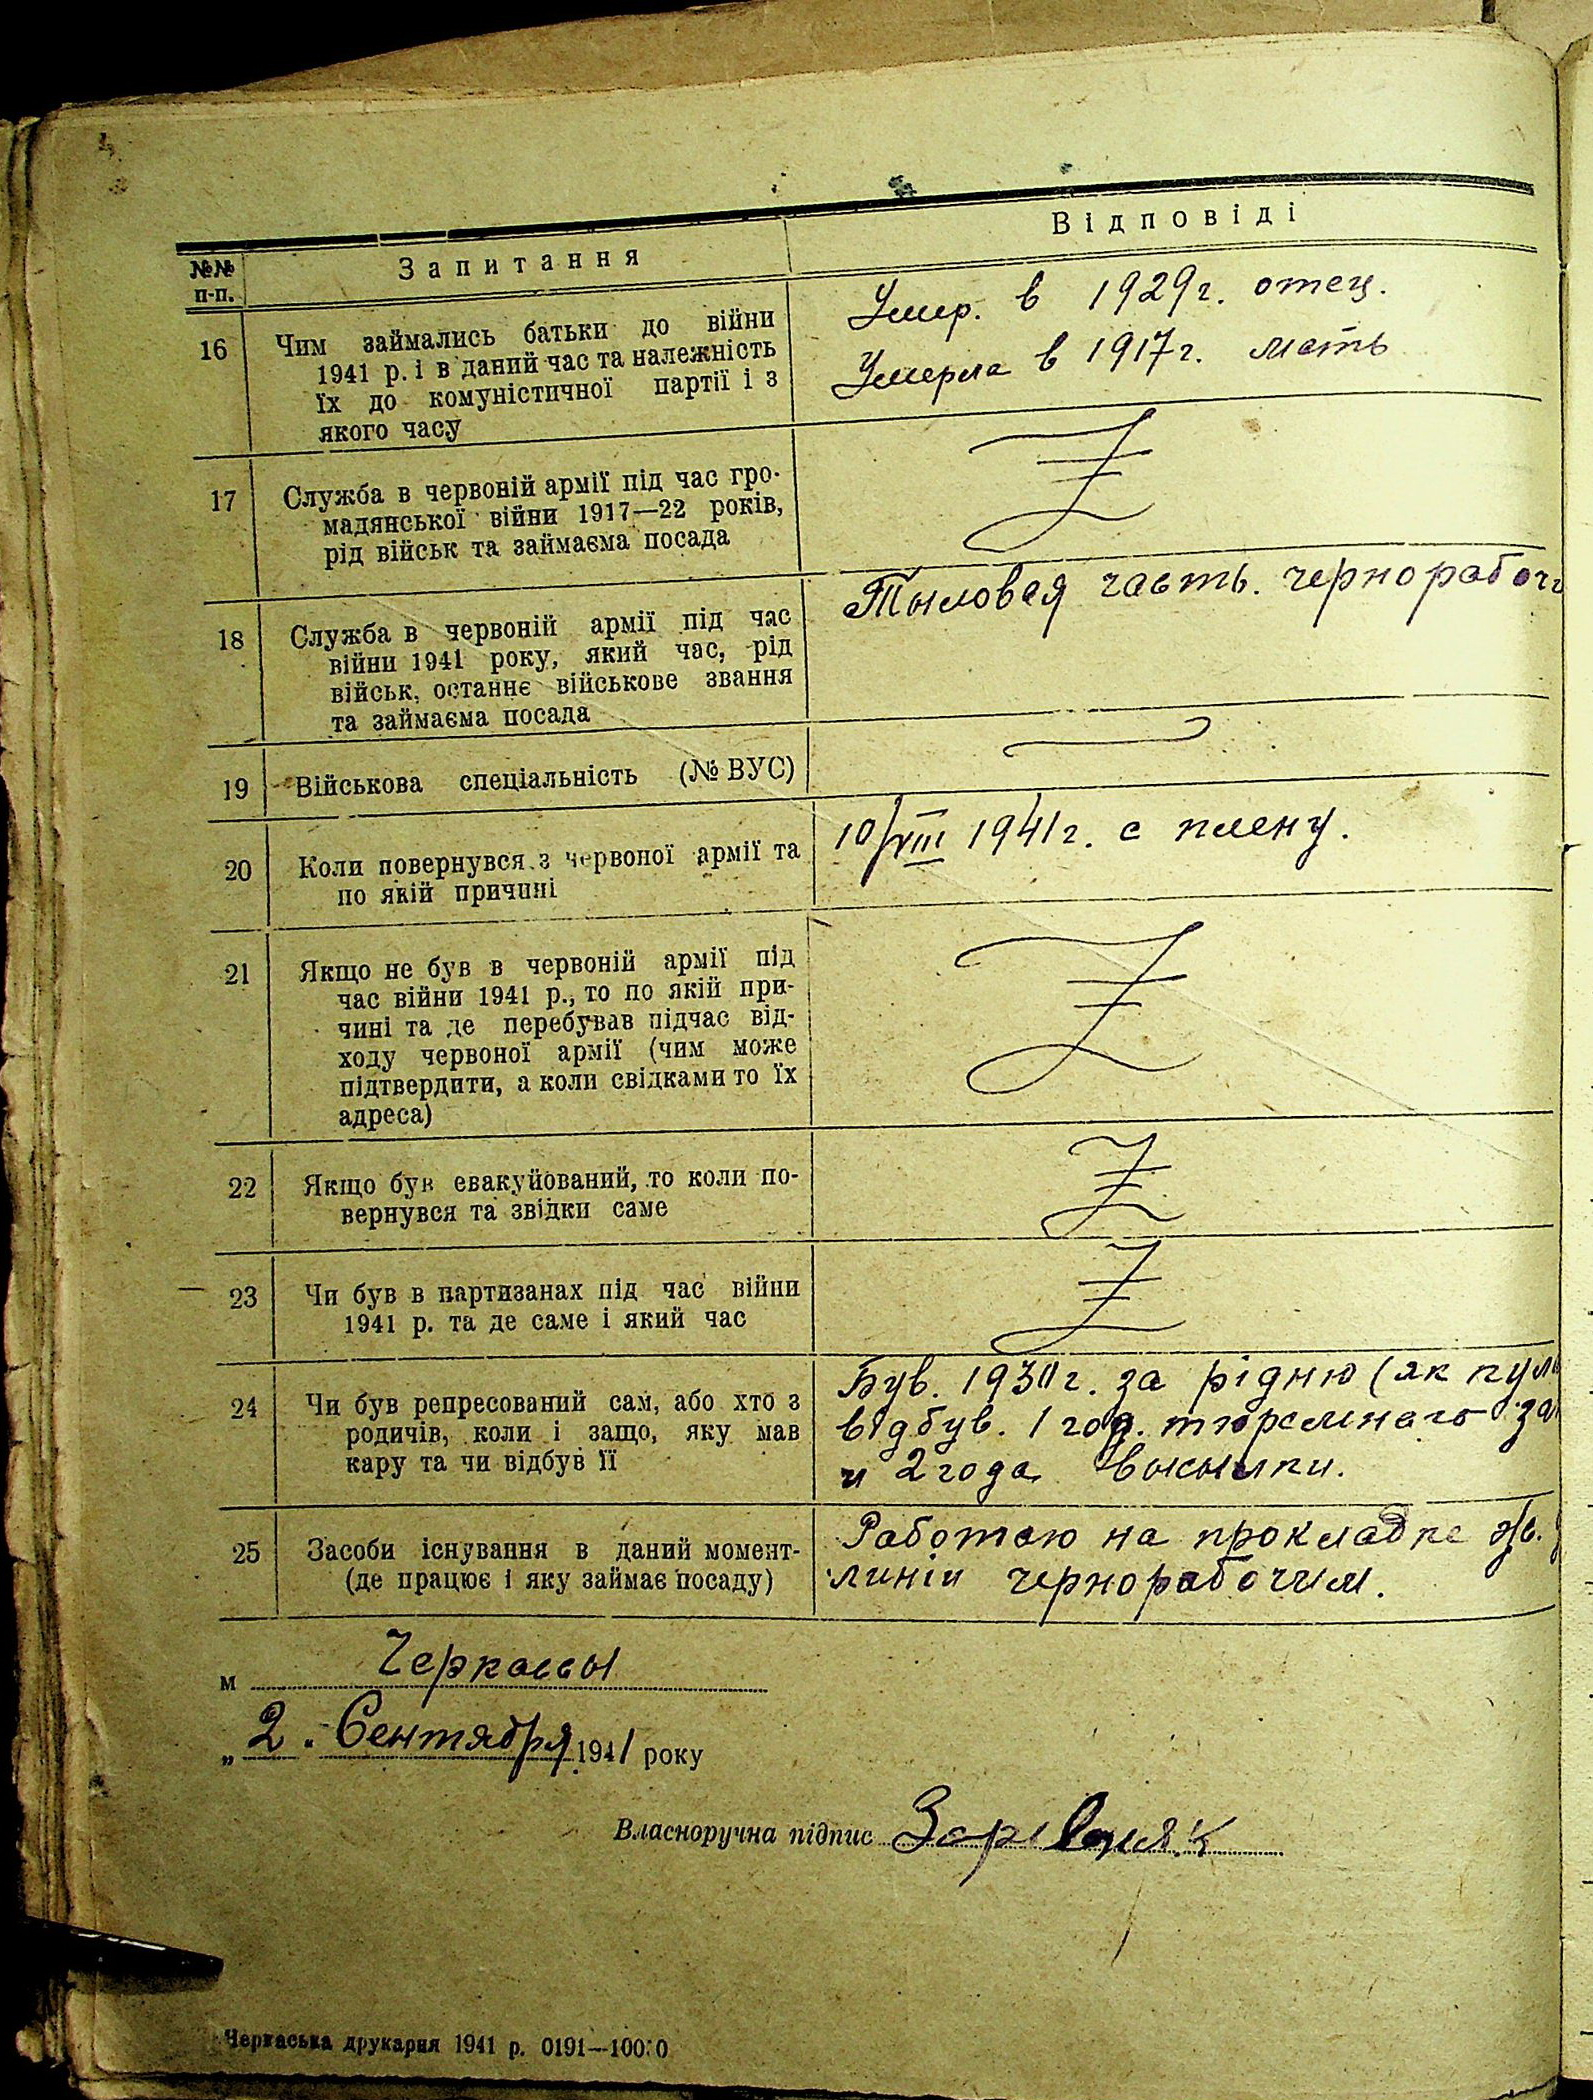 №№ п-п. Запитання Відповіді
16 Чим займались батьки до війни
1941 р. і в даний час та належність
їх до комуністичної партії і з
якого часу
Умер. в 1929 г. отец.
Умерла в 1917 г. мать
17 Служба в червоній армії під час гро-
мадянської війни 1917—22 років,
рід військ та займаєма посада
18 Служба в червоній армії під час
війни 1941 року, який час, рід
військ, останнє військове звання
та займаєма посада
Тыловая часть. чернорабоч
19 Військова спеціальність (№ ВУС)
20 Коли повернувся з червоної армії та
по якій причині
10/VIII 1941 г. с плену.
21 Якщо не був в червоній армії під
час війни 1941 р., то по якій при-
чині та де перебував підчас від-
ходу червоної армії (чим може
підтвердити, а коли свідками то їх
адреса)
22 Якщо був евакуйований, то коли по-
вернувся та звідки саме
23 Чи був в партизанах під час війни
1941 р. та де саме і який час
24 Чи був репресований сам, або хто з
родичів, коли і защо, яку мав
кару та чи відбув її
Був. за рідню (як
відбув. 1 год. тюремнаго
и 2 года высылки.
25 Засоби існування в даний момент-
(де працює і яку займає посаду)
Работаю на прокладке
линіи чернорабочим.
м Черкассы
„2" Сентября 1941 року
Власноручна підпис
Черкаська друкарня 1941 р. 0191—100:0